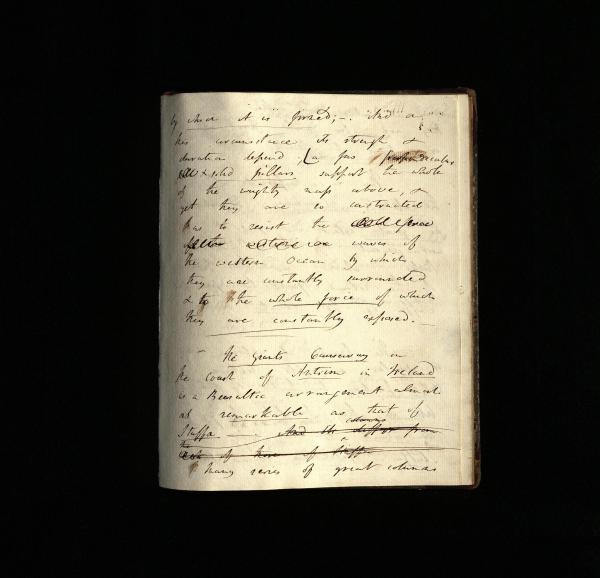 by which it is formed; -. And on
this circumstance its strength &
duration depend; a few perpendicular
& solid pillars support the whole
of the mighty mass above, &
yet they are so constructed
as to resist the force
of the waves of
the western Ocean by which
they are constantly surrounded
& to the whole force of which
they are constantly exposed. -
- The Giants Causeway on
the coast of Antrim in Ireland
is a Basaltic arrangement almost
as remarkable as that of
Staffa - And the columns differ from
the of those of Staffa
Many series of great columns